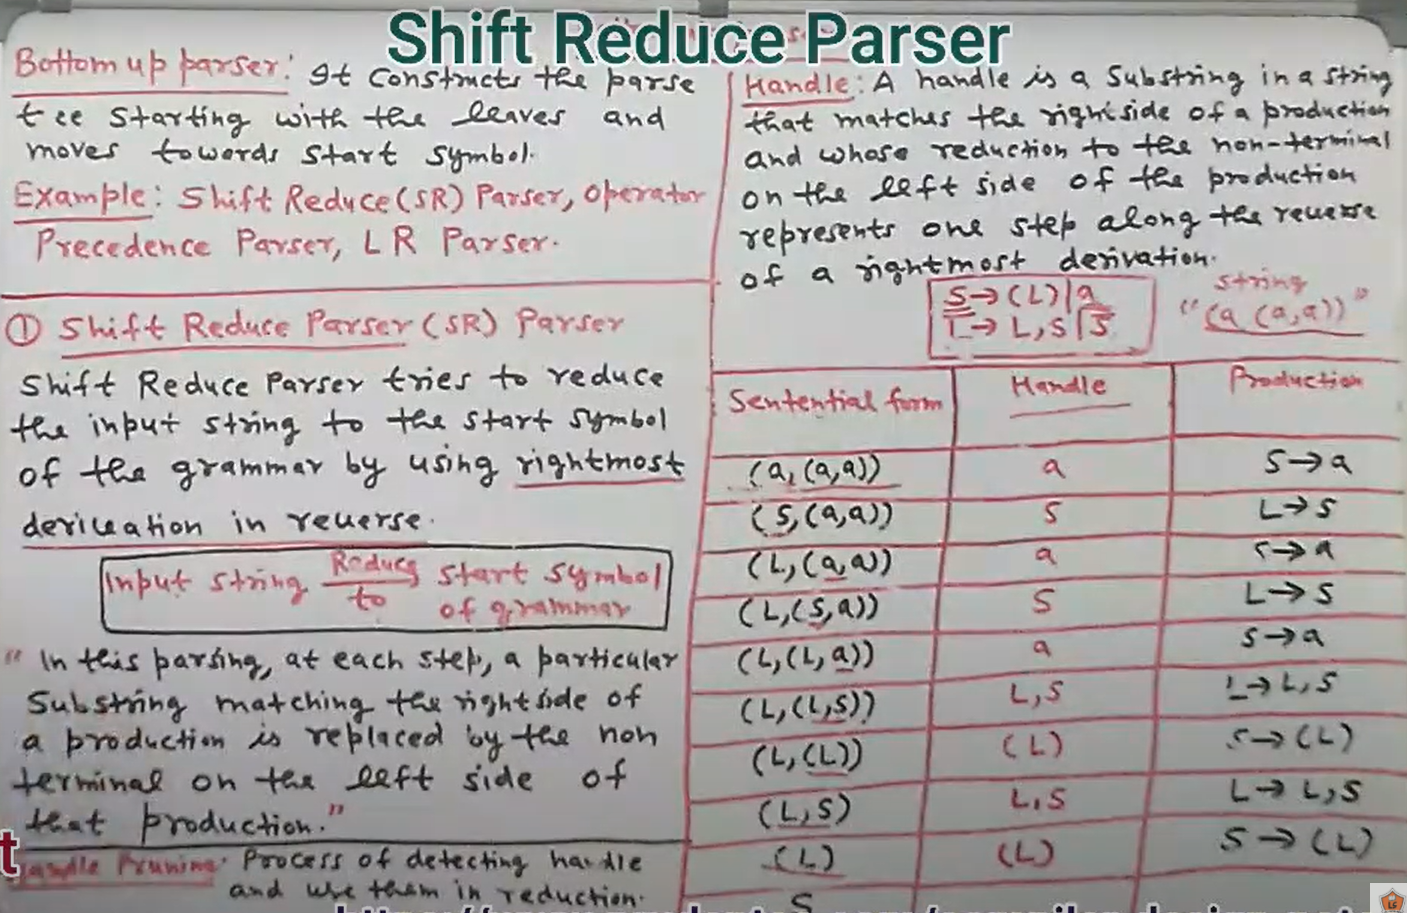 Shift Reduce Parser
Bottom up parser: It constructs the parse
tree starting with the leaves and
moves towords start symbol.
Example: Shift Reduce(SR) Parser, operator
Precedence Parser, LR Parser.
① Shift Reduce Parser (SR) Parser
Shift Reduce Parser tries to reduce
the input string to the start symbol
of the grammar by using rightmost
derivation in reverse.
Input string Reduce to start symbol
of grammar
" In this parsing, at each step, a particular
Substring matching the right side of
a production is replaced by the non
terminal on the left side of
that production."
Handle Pruning: Process of detecting handle
and use them in reduction.
Handle: A handle is a substring in a string
that matches the rightside of a production
and whose reduction to the non-terminal
on the left side of the production
represents one step along the reverse
of a rightmost derivation.
S → (L) | a
L → L,S | S
string
"(a (a,a))"
Sentential form Handle Production
(a, (a,a)) a S → a
(S, (a,a)) S L → S
(L, (a,a)) a S → a
(L, (S,a)) S L → S
(L, (L,a)) a S → a
(L, (L,S)) L,S L → L,S
(L, (L)) (L) S → (L)
(L,S) L,S L → L,S
(L) (L) S → (L)
S
t